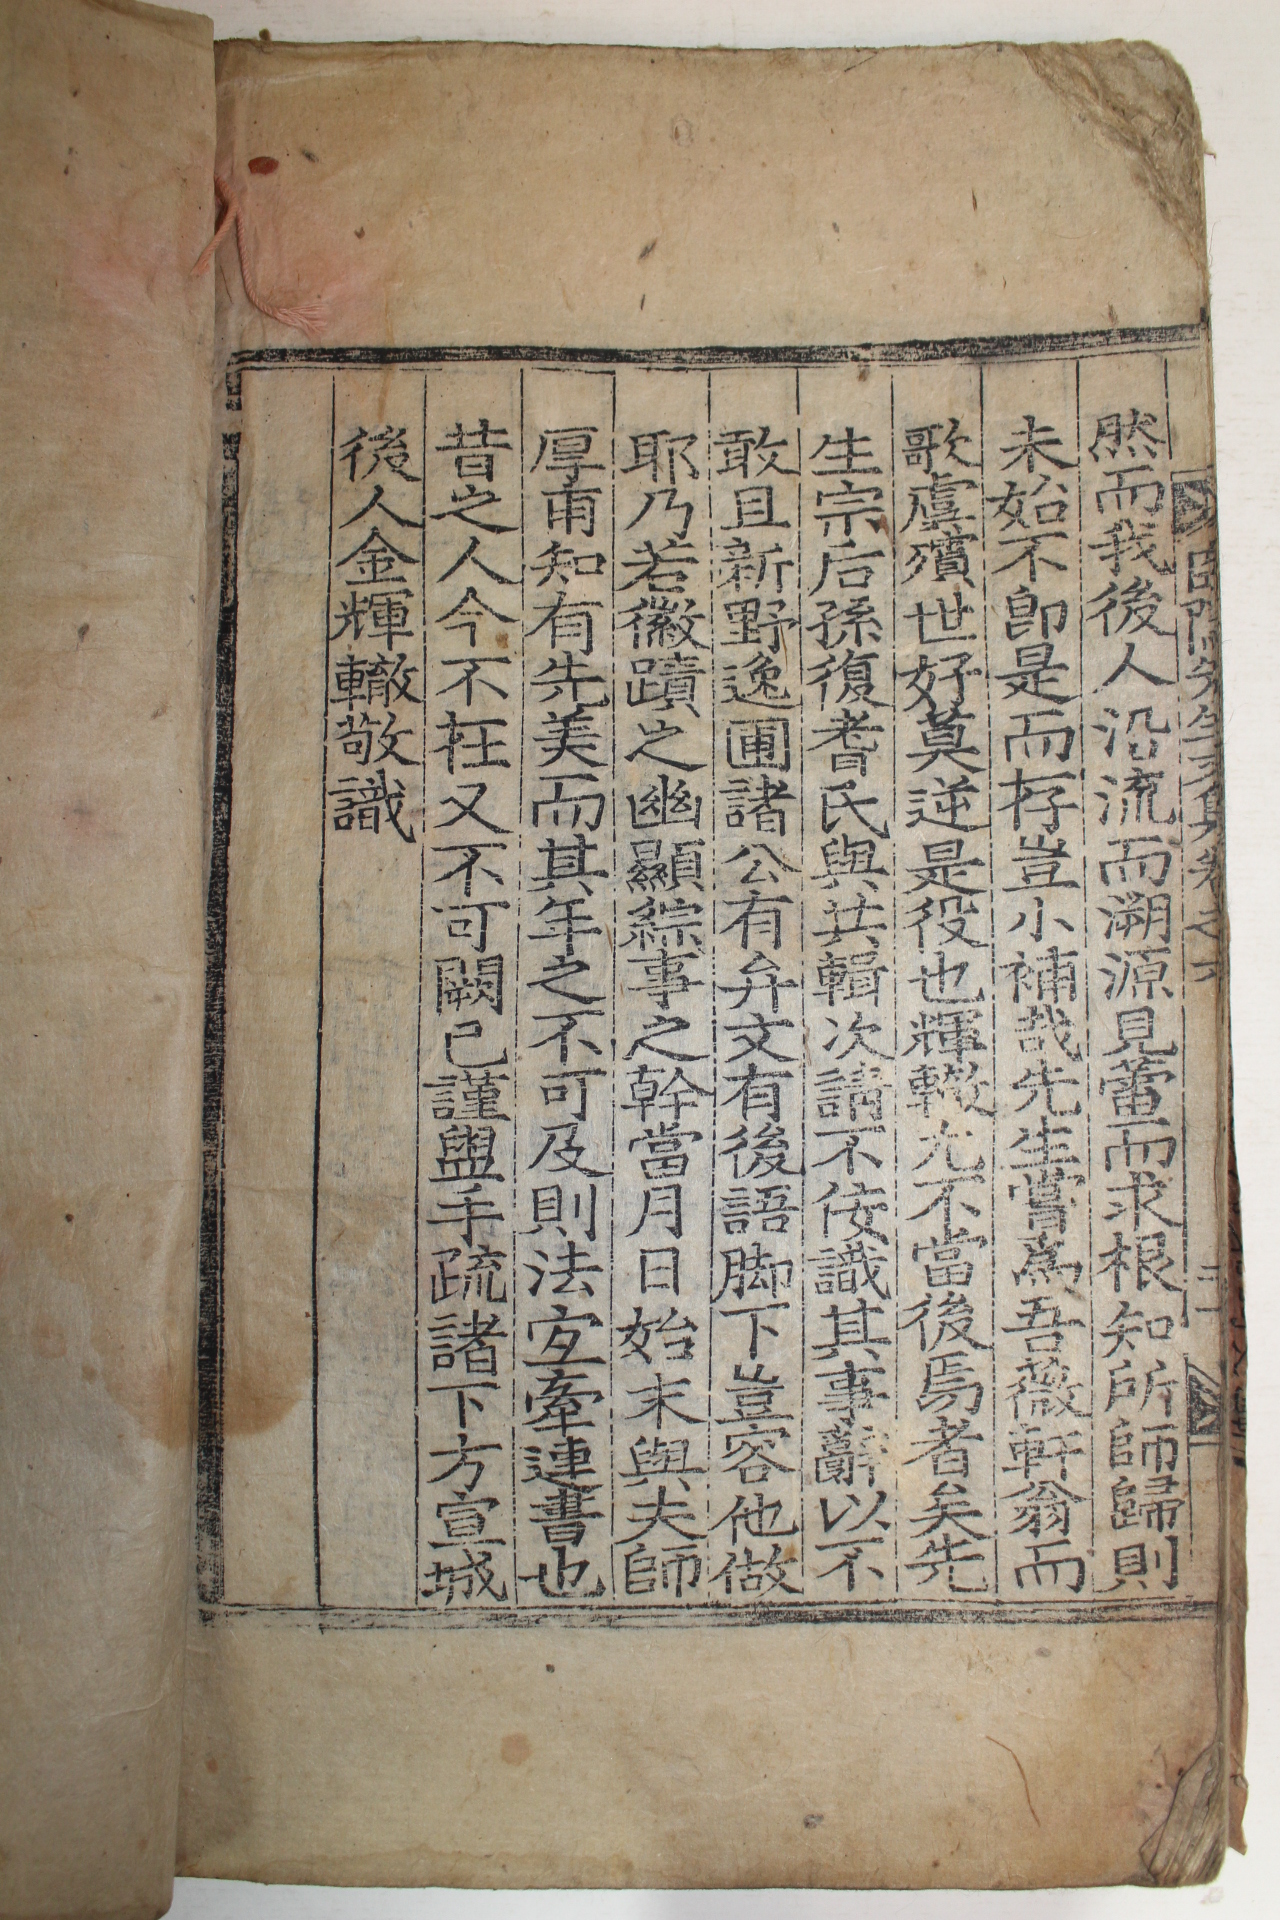 然而我後人沿流而溯源見蕾而求根知所師歸則
未始不卽是而存豈小補哉先生嘗爲吾薇軒翁而
歌虛殯世好莫逆是役也輝轍尤不當後焉者矣先
生宗后孫復耆氏與共輯次請不佞識其事辭以不
敢且新野逸圃諸公有弁文有後語脚下豈容他做
耶乃若徽蹟之幽顯綜事之幹當月日始末與夫師
厚甫知有先美而其年之不可及則法宜牽連書也
昔之人今不在又不可闕已謹盥手疏諸下方宣城
後人金輝轍敬識
先生文集卷之